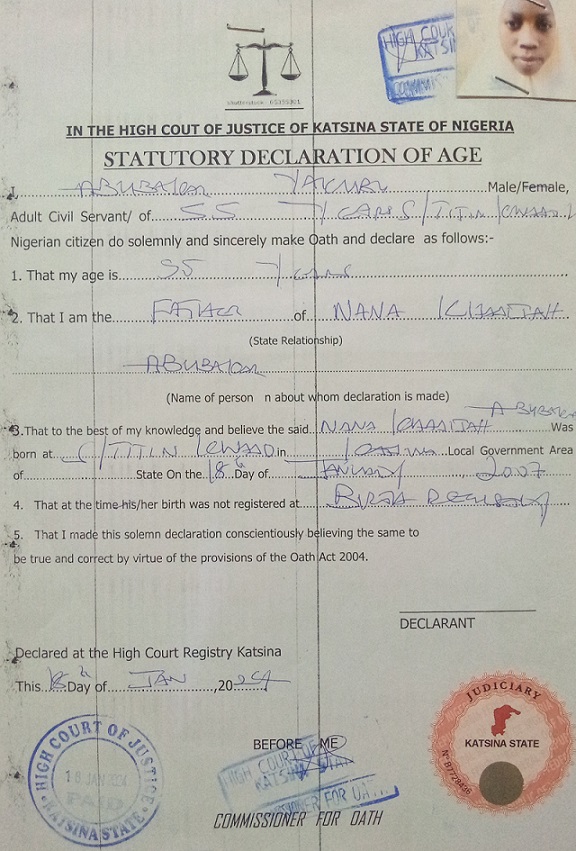 HIGH COUR
KATSI
COMMISS
shutterstock
IN THE HIGH COUT OF JUSTICE OF KATSINA STATE OF NIGERIA
STATUTORY DECLARATION OF AGE
I ABUBAKAR YAKUBU Male/Female,
Adult Civil Servant/ of 55 YEARS/TITIN KWAAD
Nigerian citizen do solemnly and sincerely make Oath and declare as follows:-
1. That my age is 55 Years
2. That I am the FATHER of NANA KHADIJAH
(State Relationship)
ABUBAKAR
(Name of person n about whom declaration is made)
ABUBAKAR
3.That to the best of my knowledge and believe the said NANA KHADIJAH Was
born at TITIN KWAAD in KATSINA Local Government Area
of State On the 18th Day of JANUARY, 2007
4. That at the time his/her birth was not registered at BIRTH REGISTRY
5. That I made this solemn declaration conscientiously believing the same to
be true and correct by virtue of the provisions of the Oath Act 2004.
DECLARANT
Declared at the High Court Registry Katsina
This 18th Day of JAN, 20
HIGH COURT OF JUSTICE
18 JAN
PAID
KATSINA STATE
BEFORE ME
HIGH COURT OF
KATSINA STATE
COMMISSIONER FOR OA
COMMISSIONER FOR OATH
JUDICIARY
KATSINA STATE
Nº B7728436